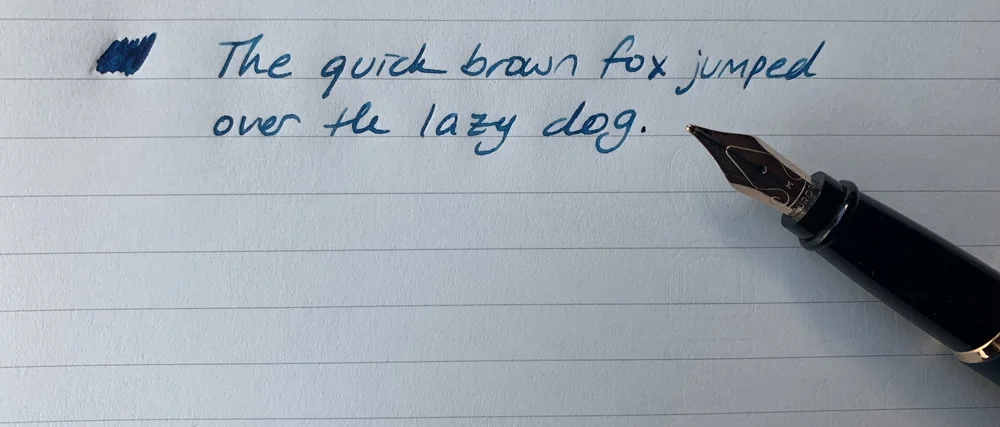 The quick brown fox jumped
over the lazy dog.
M